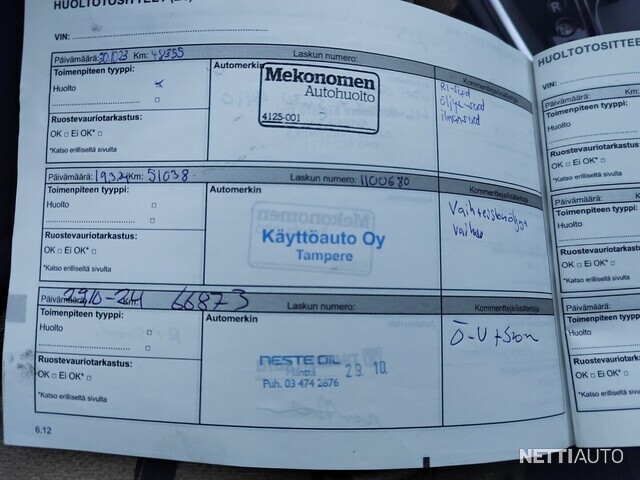 HUOLTOTOSITTEET
VIN:
Päivämäärä: 30.10.23 Km: 48355 Laskun numero:
Toimenpiteen tyyppi: Automerkin Kommentteja/lisätietoja
Huolto
Mekonomen
Autohuolto
4125-001
Ruostevauriotarkastus:
OK □ Ei OK* □
*Katso erilliseltä sivulta
Päivämäärä: 19.3.24 Km: 51038 Laskun numero: 1100680
Toimenpiteen tyyppi: Automerkin Kommentteja/lisätietoja
Huolto □
Mekonomen
Käyttöauto Oy
Tampere
Vaihteistoöljyt
vaihto
Ruostevauriotarkastus:
OK □ Ei OK* □
*Katso erilliseltä sivulta
Päivämäärä: 29.10-24 66873 Laskun numero:
Toimenpiteen tyyppi: Automerkin Kommentteja/lisätietoja
Huolto □
Ö-V + Suon
NESTE OIL
Mänttä
Puh. 03 474 2876
29.10.
Ruostevauriotarkastus:
OK □ Ei OK* □
*Katso erilliseltä sivulta
6.12
HUOLTOTOSITTEE
VIN:
Päivämäärä: Km:
Toimenpiteen tyyppi:
Huolto
Ruostevauriotarkastus:
OK □ Ei OK* □
*Katso erilliseltä sivulta
Päivämäärä:
Toimenpiteen tyyppi:
Huolto
Ruostevauriotarkastus:
OK □ Ei OK* □
*Katso erilliseltä sivulta
Päivämäärä:
Toimenpiteen tyyppi:
Huolto
Ruostevauriotarkastus:
OK □ Ei OK* □
*Katso erilliseltä sivulta
NETTIAUTO